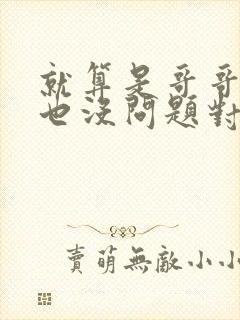 就算是哥哥
也沒問題對
賣萌無敵小小